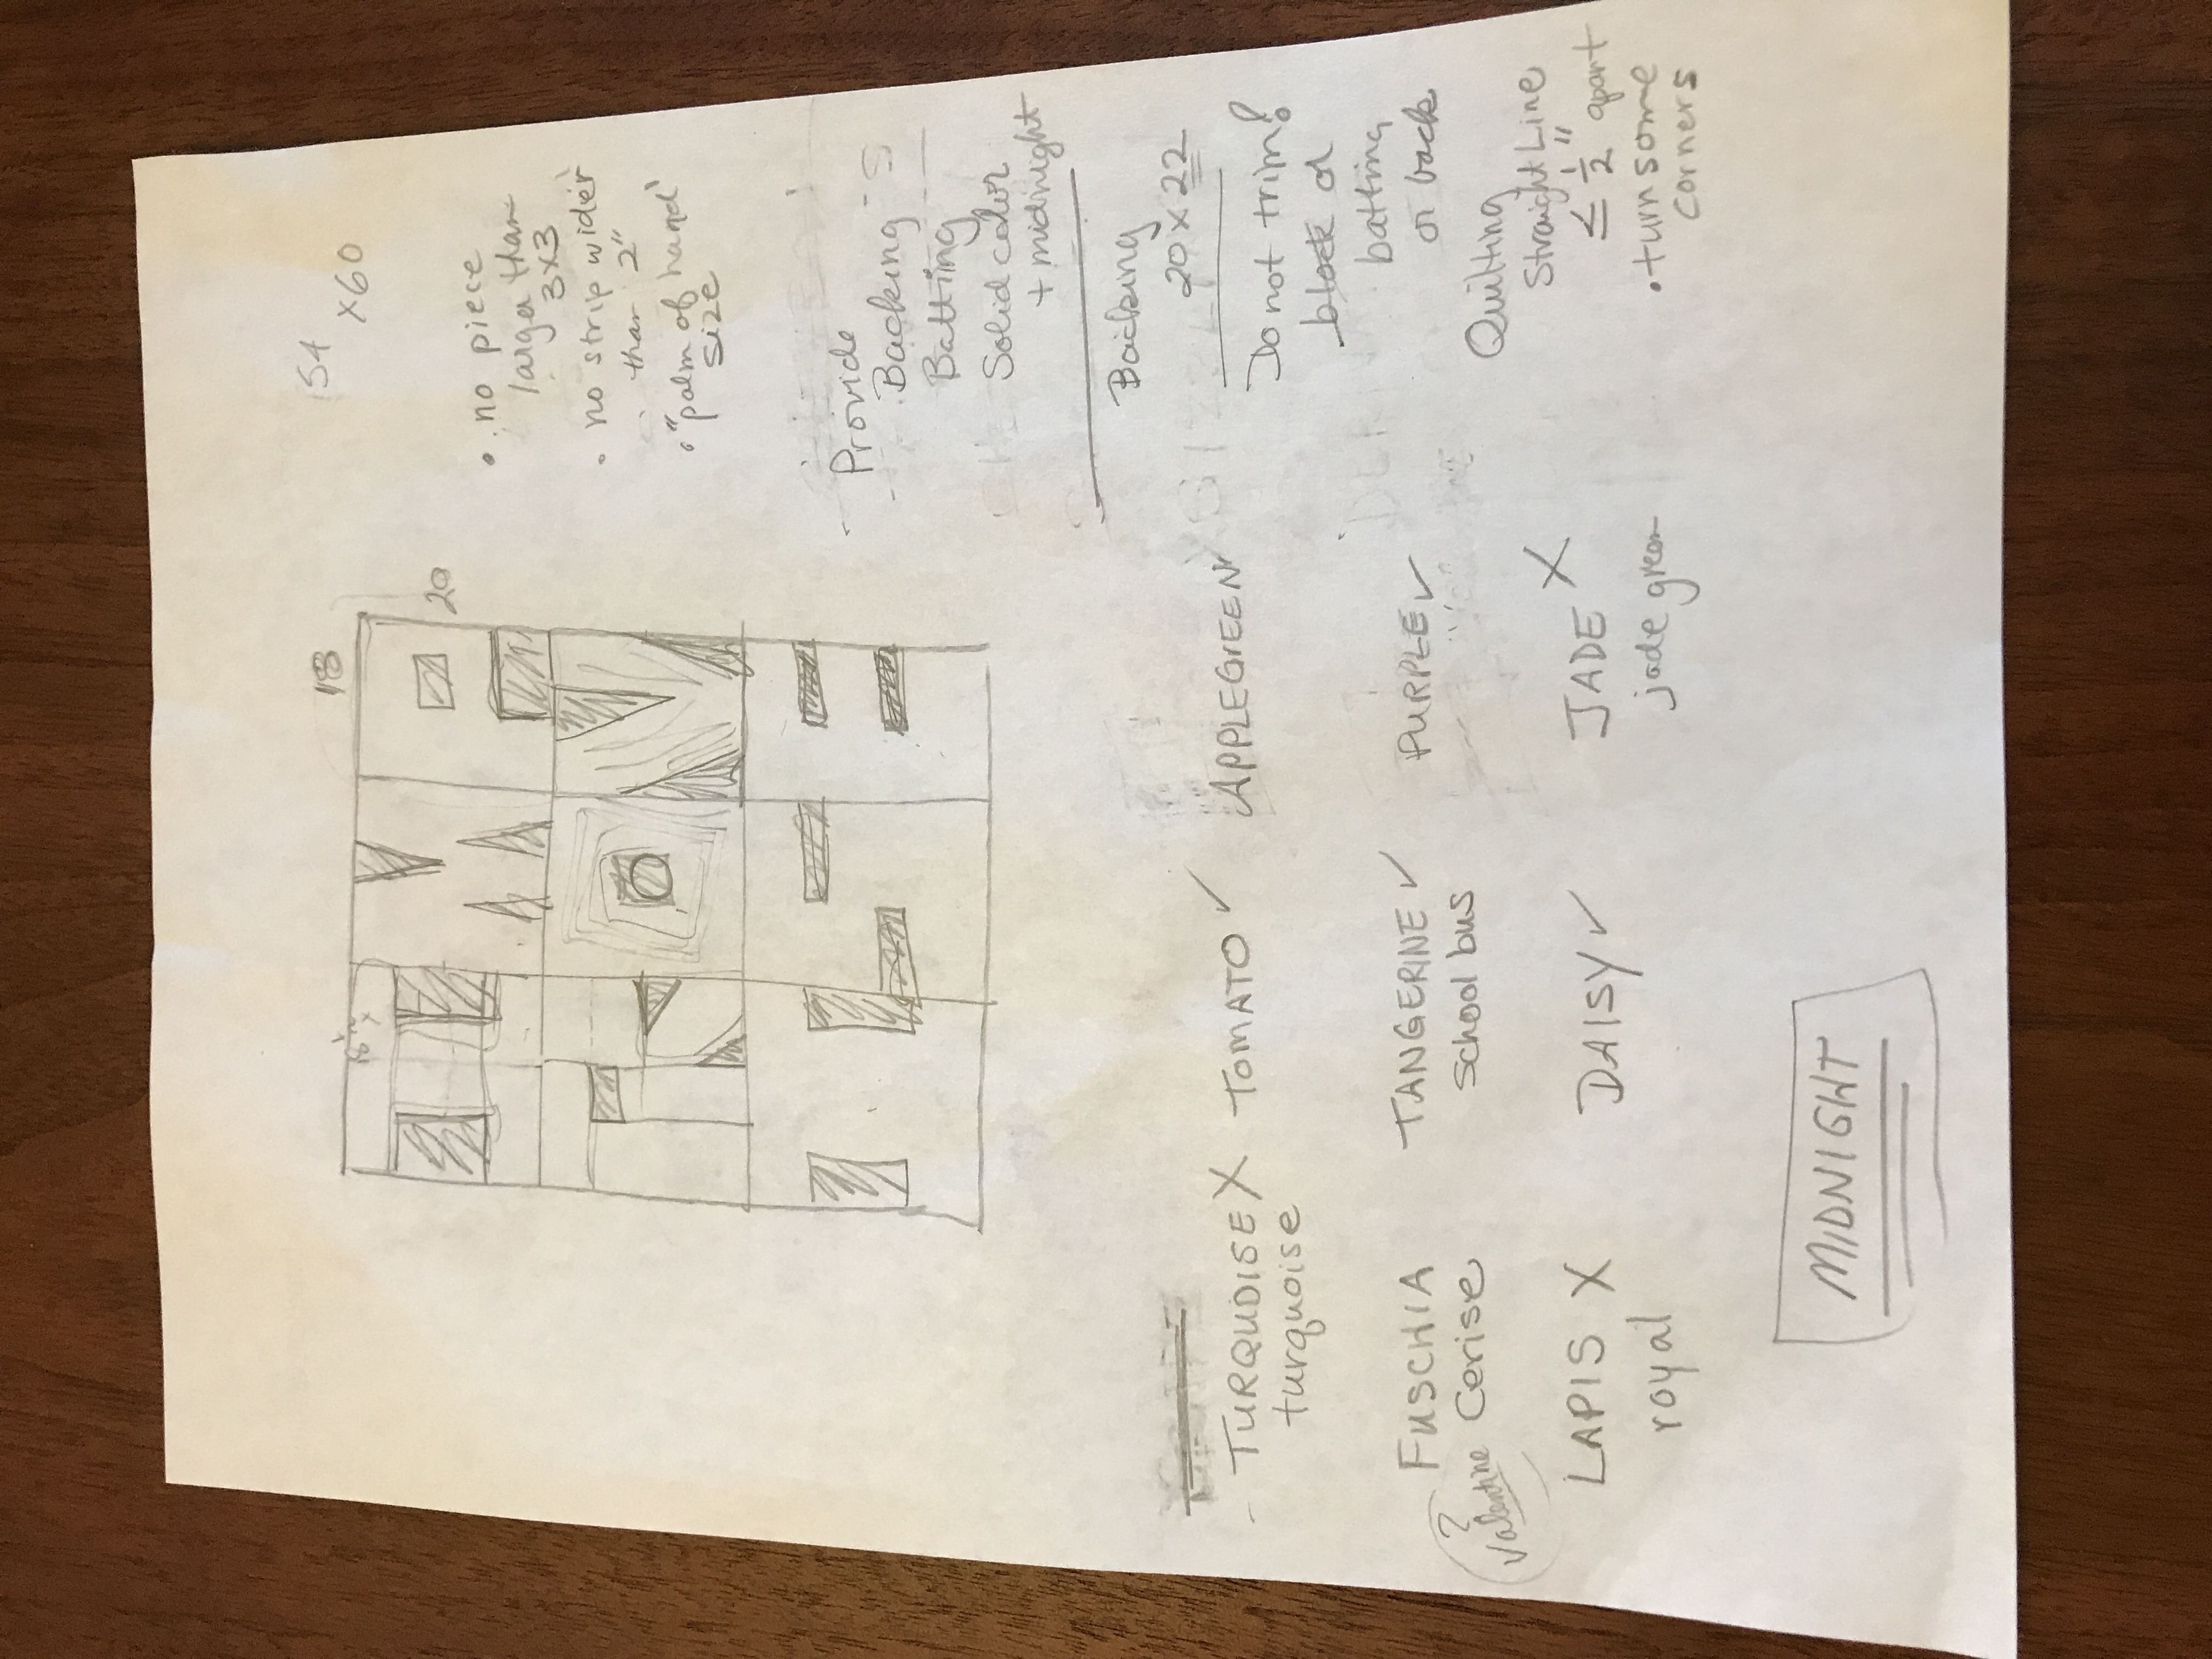 54
x60
• no piece
larger than
3x3
• no strip wider
than 2"
• "palm of hand"
size
18
20
Provide
Backing
Batting
Solid color
+ midnight
Backing
20 x 22
Do not trim!
block or
batting
or back
Quilting
Straight Line
≤ 1/2" apart
• turn some
corners
TURQUOISE X TOMATO ✓ APPLEGREEN
turquoise
FUSCHIA TANGERINE ✓ PURPLE ✓
? Valentine Cerise School bus
LAPIS X DAISY ✓ JADE X
royal jade green
MIDNIGHT